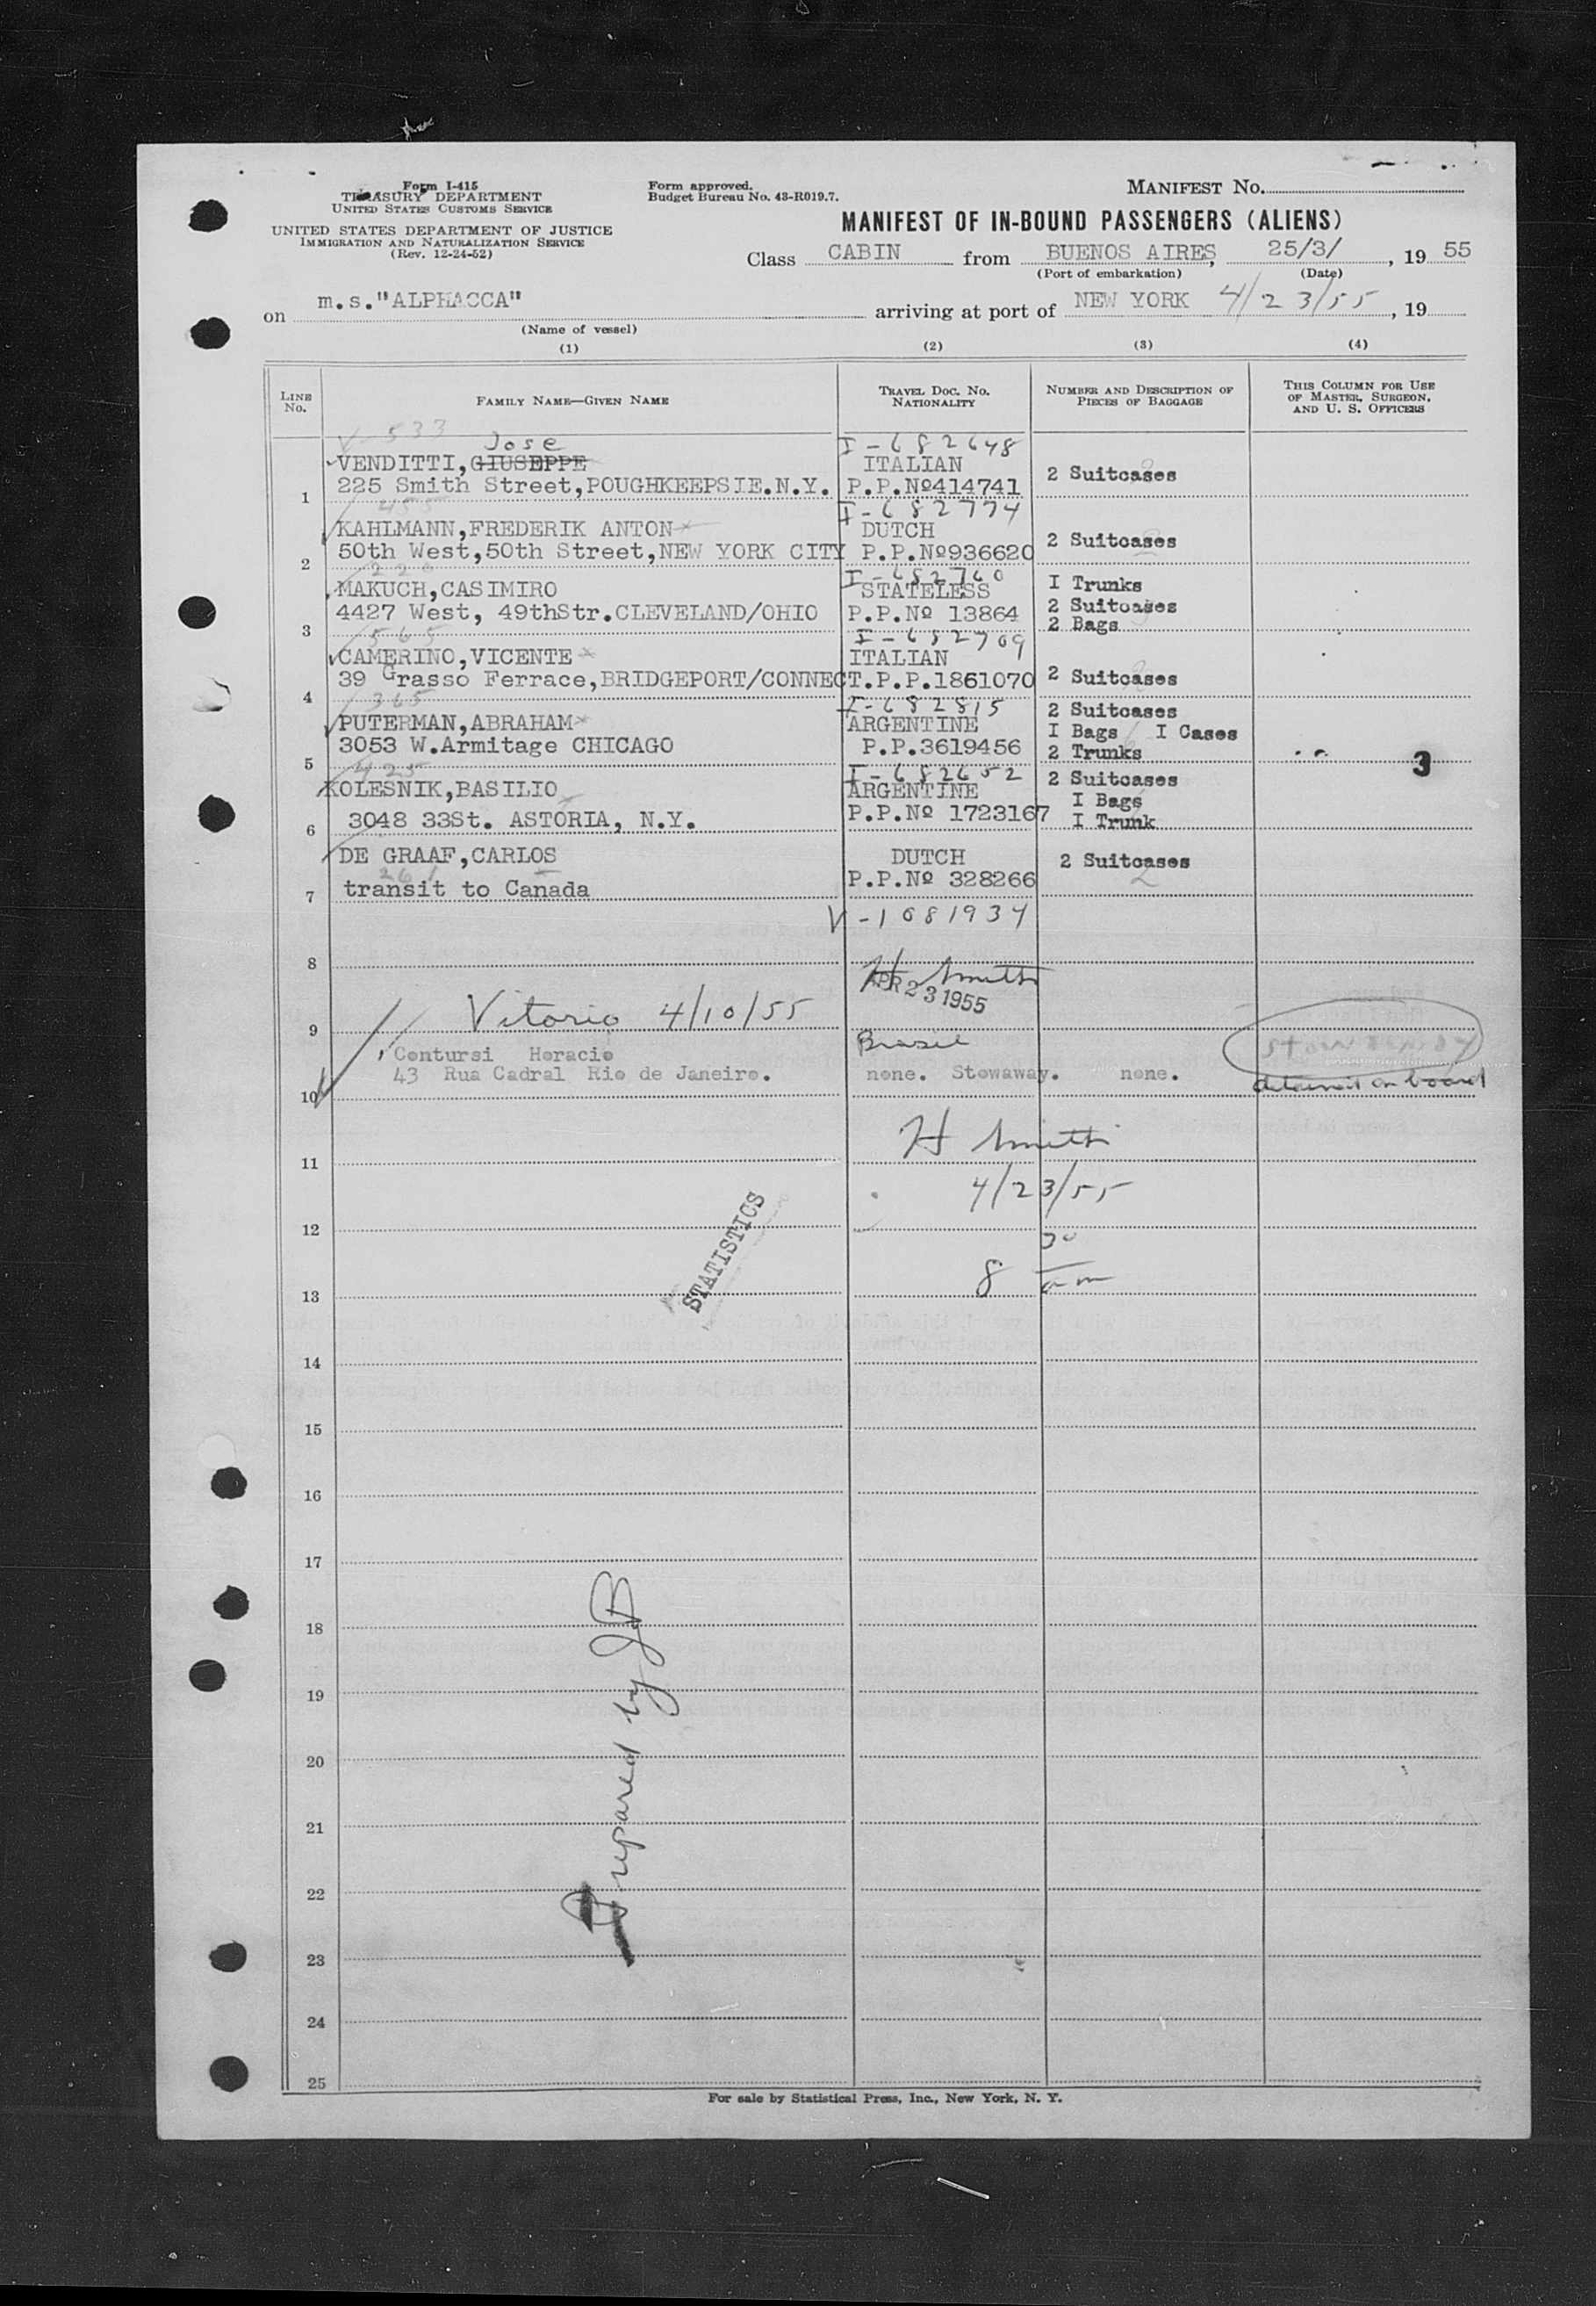 Form I-415
TREASURY DEPARTMENT
UNITED STATES CUSTOMS SERVICE
UNITED STATES DEPARTMENT OF JUSTICE
IMMIGRATION AND NATURALIZATION SERVICE
(Rev. 12-24-52)
Form approved.
Budget Bureau No. 43-R019.7.
MANIFEST No.
MANIFEST OF IN-BOUND PASSENGERS (ALIENS)
Class CABIN from BUENOS AIRES, 25/3/, 19 55
(Port of embarkation) (Date)
on m.s."ALPHACCA" arriving at port of NEW YORK 4/23/55, 19
(Name of vessel)
(1) (2) (3) (4)
LINE No. FAMILY NAME—GIVEN NAME TRAVEL DOC. NO. NATIONALITY NUMBER AND DESCRIPTION OF PIECES OF BAGGAGE THIS COLUMN FOR USE OF MASTER, SURGEON, AND U. S. OFFICERS
V-533
Jose I-682648
VENDITTI,GIUSEPPE ITALIAN 2 Suitcases
1 225 Smith Street,POUGHKEEPSIE.N.Y. P.P.Nº414741
455 I-682774
KAHLMANN,FREDERIK ANTON DUTCH 2 Suitcases
2 50th West,50th Street,NEW YORK CITY P.P.Nº936620
220 I-682760
MAKUCH,CASIMIRO STATELESS I Trunks
4427 West, 49thStr.CLEVELAND/OHIO P.P.Nº 13864 2 Suitcases
3 2 Bags
565 I-682709
CAMERINO,VICENTE ITALIAN
4 39 Grasso Ferrace,BRIDGEPORT/CONNECT. P.P.1861070 2 Suitcases
365 I-682815 2 Suitcases
PUTERMAN,ABRAHAM ARGENTINE I Bags I Cases
3053 W.Armitage CHICAGO P.P.3619456 2 Trunks
5 3
425 I-682652 2 Suitcases
KOLESNIK,BASILIO ARGENTINE I Bags
6 3048 33St. ASTORIA, N.Y. P.P.Nº 1723167 I Trunk
DE GRAAF,CARLOS DUTCH 2 Suitcases
261 2
7 transit to Canada P.P.Nº 328266
V-1081934
8
H Smith
APR 23 1955
9 Vitoria 4/10/55
Contursi Horacio Brasil stowaway
43 Rua Cadral Rio de Janeiro. none. Stowaway. none. detained on board
10
H Smith
11
4/23/55
12
8 30 am
13
STATISTICS
14
15
16
17
18
19
20
21
22
23
24
25
Prepared by JB
For sale by Statistical Press, Inc., New York, N. Y.